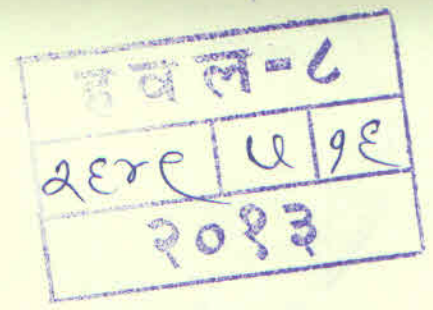 हवल-८
२६४९ ५ १६
२०१३